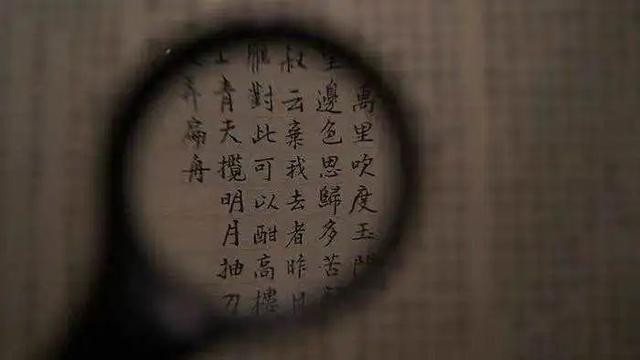 萬里吹度玉門
望邊色思歸多苦顏
叔云棄我去者昨日
雁對此可以酣高樓
上青天攬明月抽刀
弄扁舟